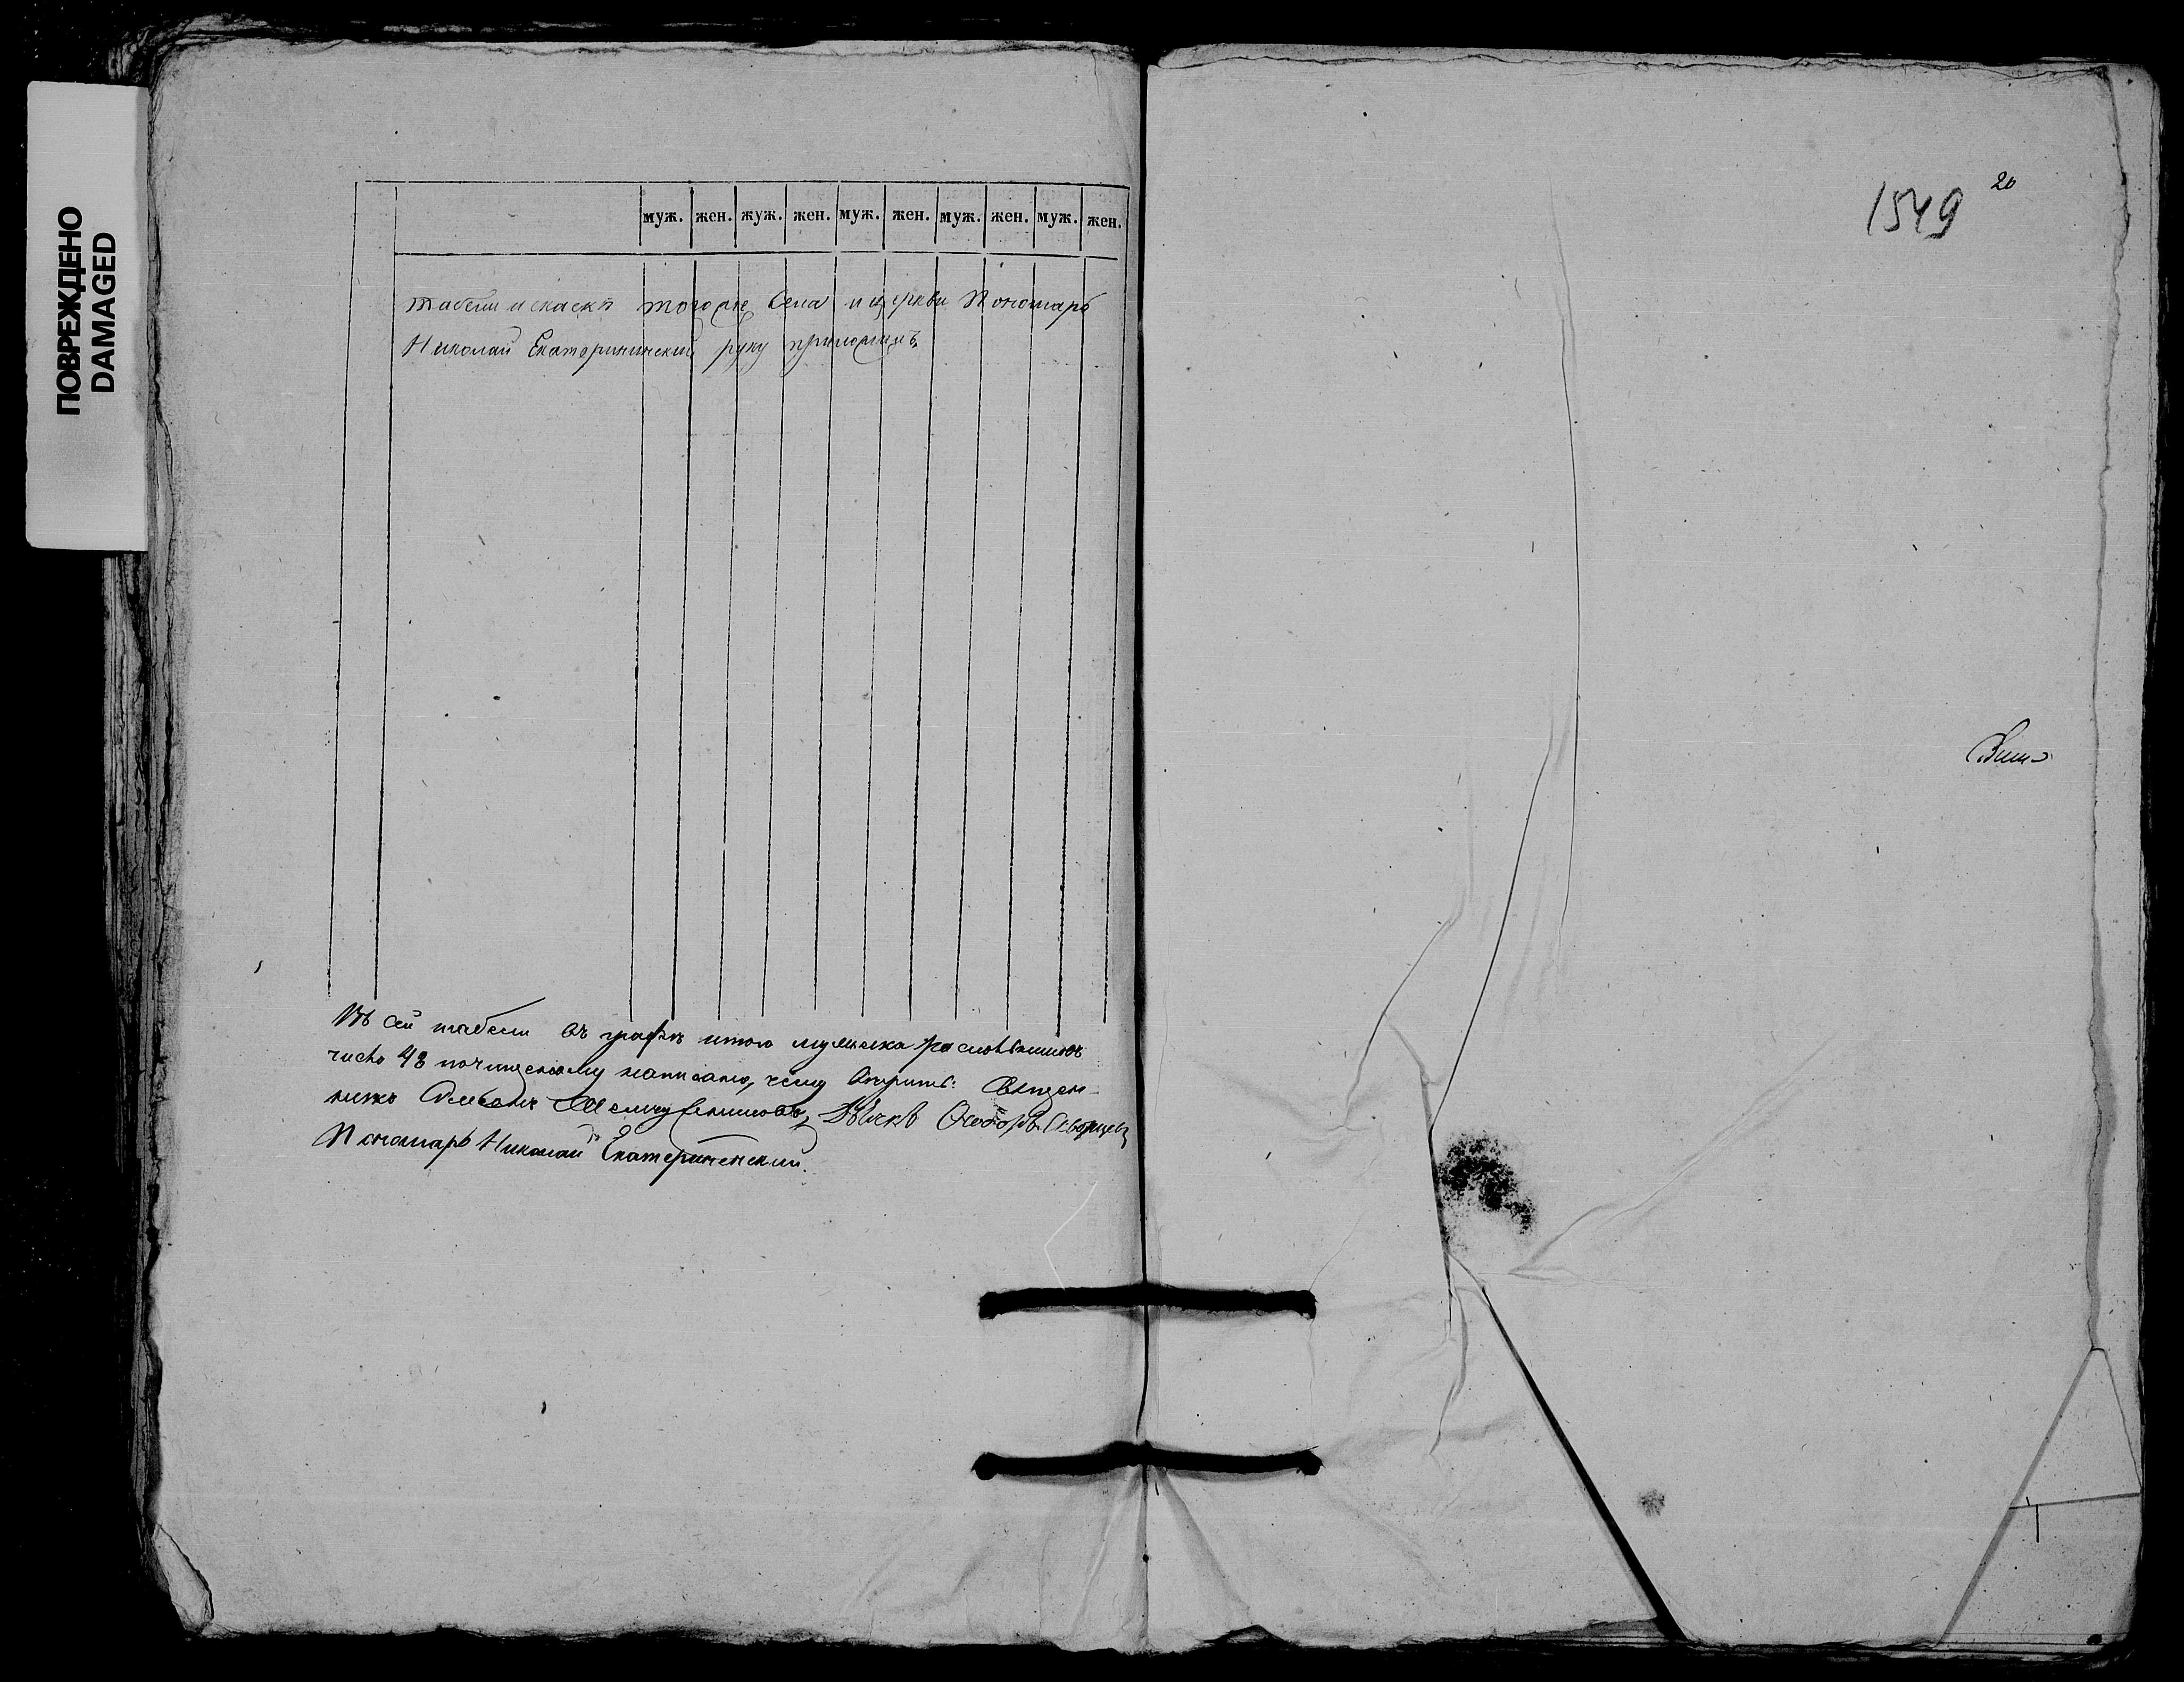 ПОВРЕЖДЕНО
DAMAGED
муж. жен. жуж. жен. муж. жен. муж. жен. муж. жен.
табели и скаскѣ тогоже Села и церкви Пономарь
Николай Екатерининский руку приложилъ
Въ сей табели въ графѣ итого мужеска раскольниковъ
число 48 почищенному написано, чему вѣрить: Священ-
никъ Жемчужниковъ, Дьячкъ Ѳеодоръ Скворцевъ
Пономарь Николай Екатерининский.
1549 20